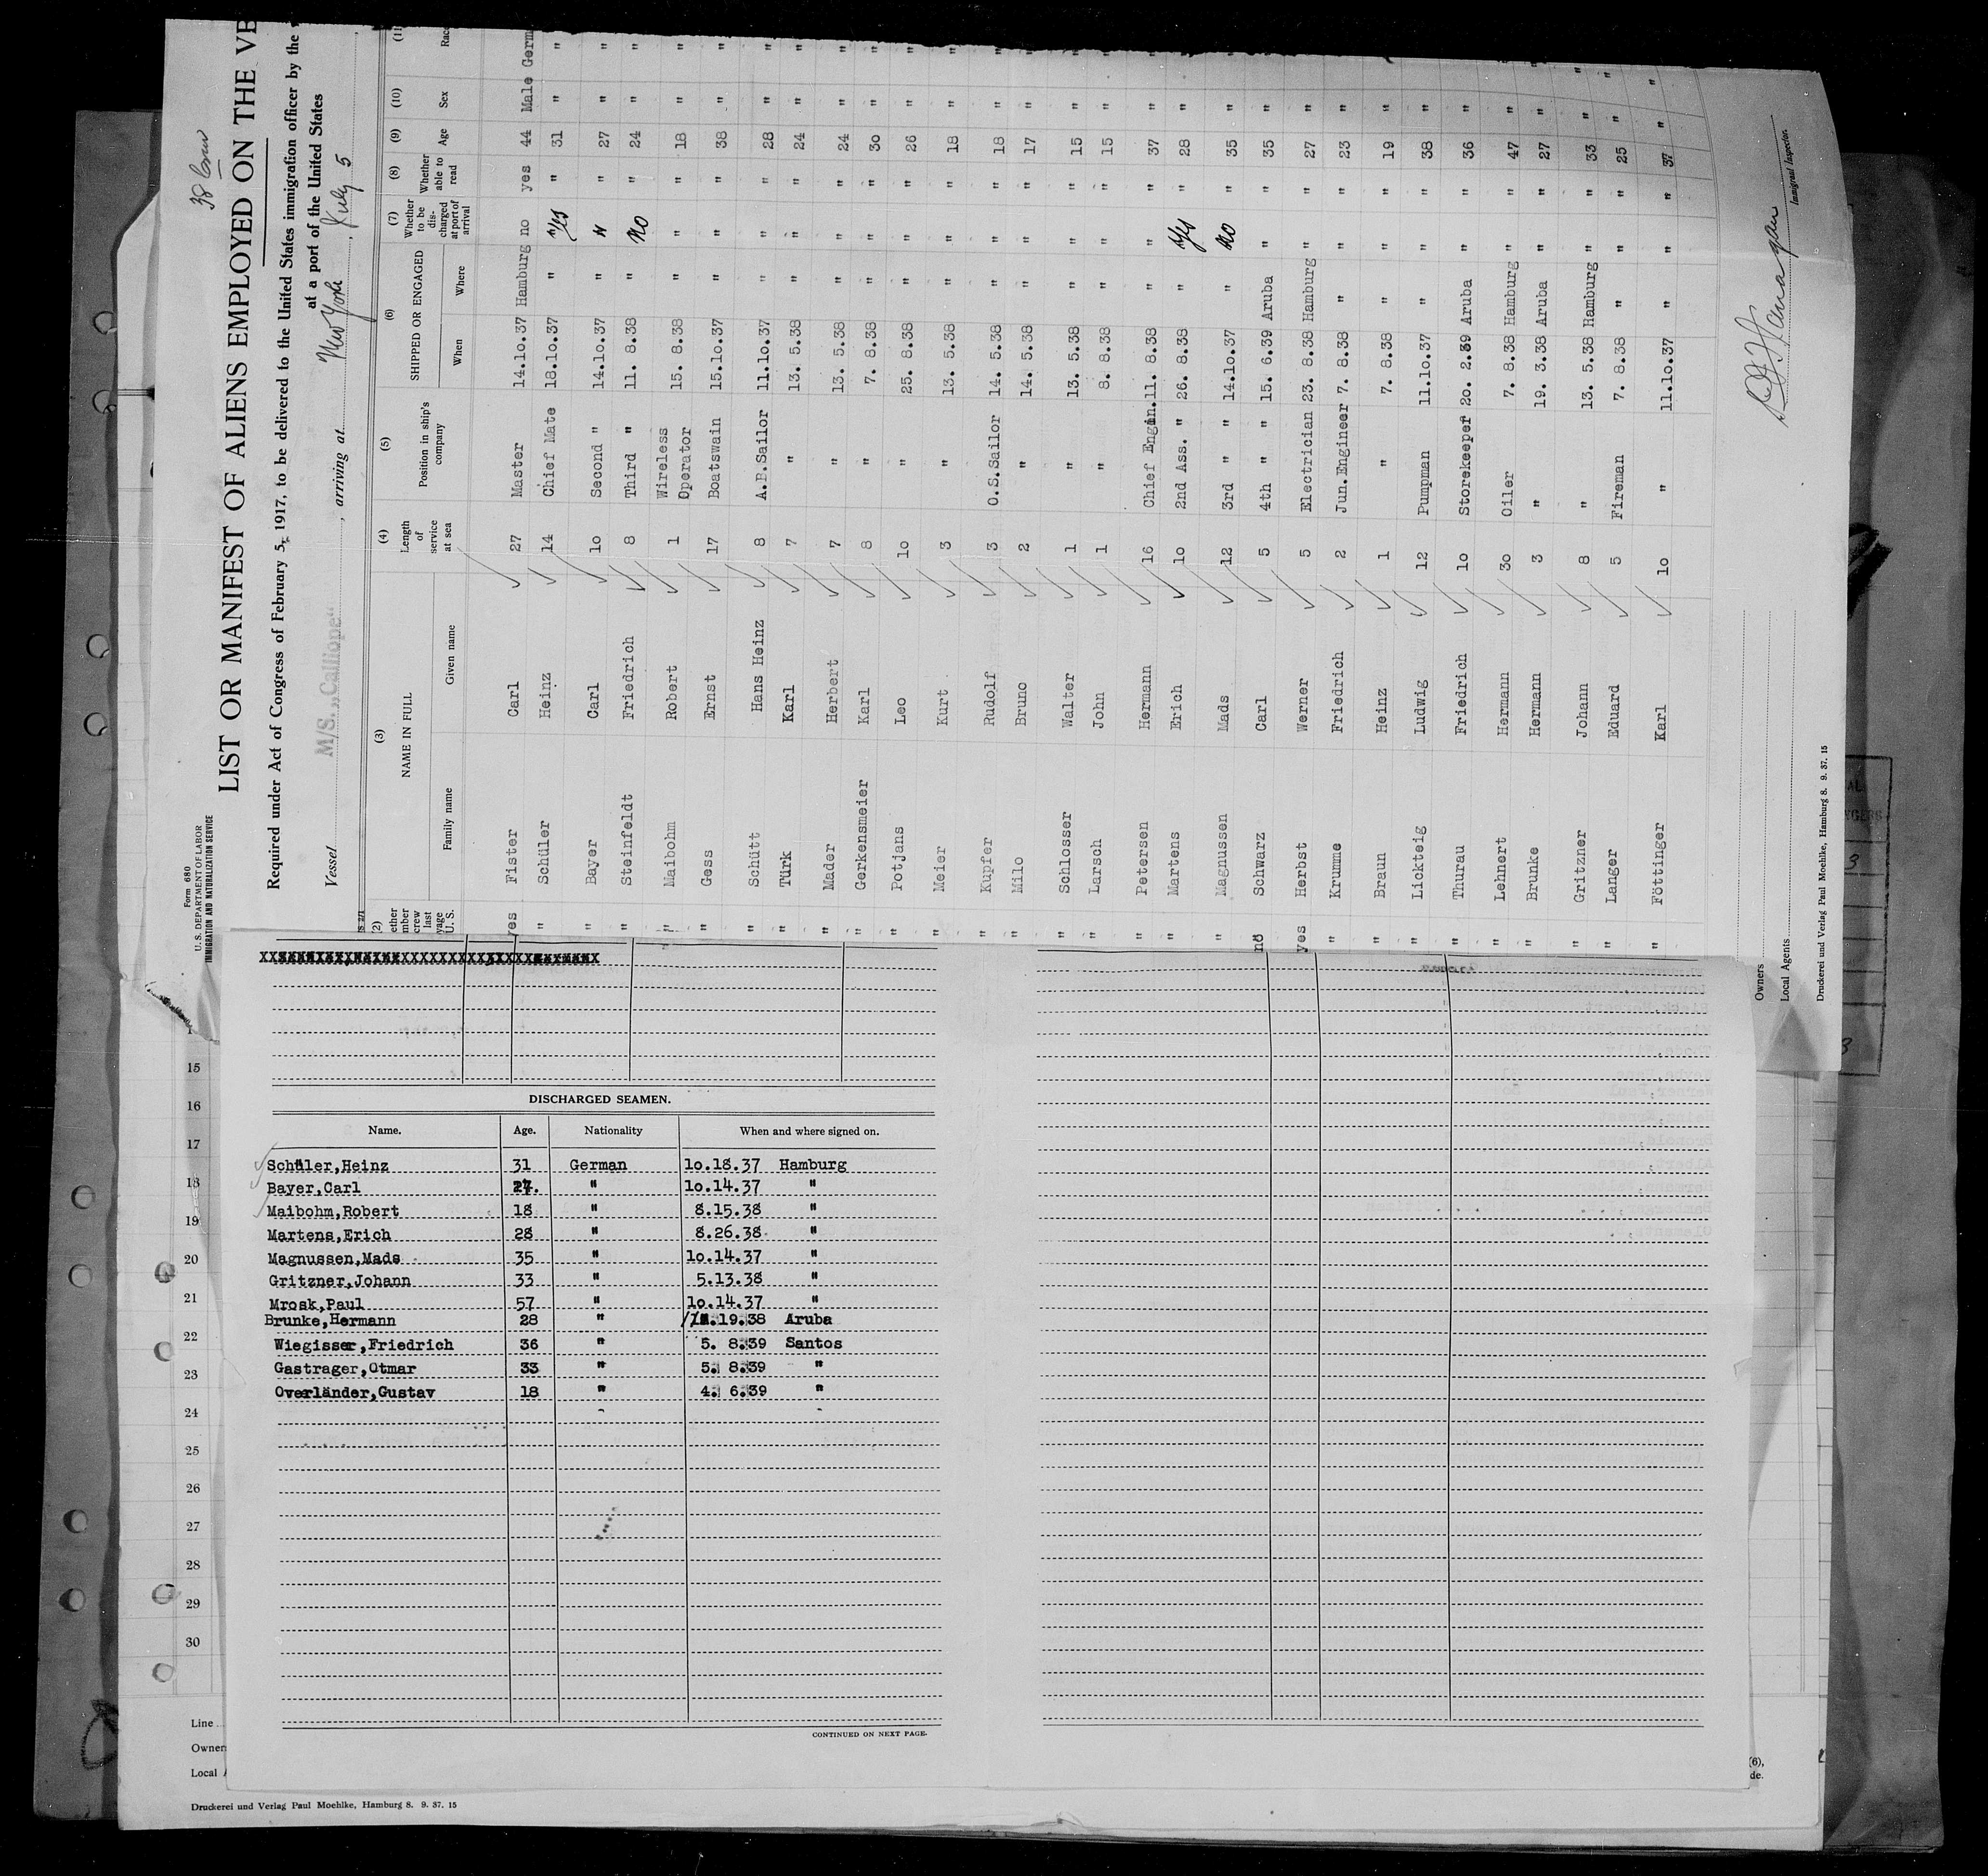 38 Crew
Form 680
U. S. DEPARTMENT OF LABOR
IMMIGRATION AND NATURALIZATION SERVICE
LIST OR MANIFEST OF ALIENS EMPLOYED ON THE
Required under Act of Congress of February 5, 1917, to be delivered to the United States immigration officer by the
at a port of the United States
Vessel M/S. „Calliope“, arriving at New York, July 5
(2) (3) (4) (5) (6) (7) (8) (9) (10)
NAME IN FULL Length of service at sea Position in ship's company SHIPPED OR ENGAGED Whether to be discharged at port of arrival Whether able to read Age Sex Race
Family name Given name When Where
yes Fister Carl 27 Master 14.10.37 Hamburg no yes 44 Male Germ
" Schüler Heinz 14 Chief Mate 18.10.37 " Yes " 31 " "
" Bayer Carl 10 Second " 14.10.37 " " " 27 " "
" Steinfeldt Friedrich 8 Third " 11. 8.38 " No " 24 " "
" Maibohm Robert 1 Wireless Operator 15. 8.38 " " " 18 " "
" Gess Ernst 17 Boatswain 15.10.37 " " " 38 " "
" Schütt Hans Heinz 8 A.B.Sailor 11.10.37 " " " 28 " "
" Türk Karl 7 " 13. 5.38 " " " 24 " "
" Mader Herbert 7 " 13. 5.38 " " " 24 " "
" Gerkensmeier Karl 8 " 7. 8.38 " " " 30 " "
" Potjans Leo 10 " 25. 8.38 " " " 26 " "
" Meier Kurt 3 " 13. 5.38 " " " 18 " "
" Kupfer Rudolf 3 O.S.Sailor 14. 5.38 " " " 18 " "
" Milo Bruno 2 " 14. 5.38 " " " 17 " "
" Schlosser Walter 1 " 13. 5.38 " " " 15 " "
" Larsch John 1 " 8. 8.38 " " " 15 " "
" Petersen Hermann 16 Chief Engin. 11. 8.38 " " " 37 " "
" Martens Erich 10 2nd Ass. " 26. 8.38 " Yes " 28 " "
" Magnussen Mads 12 3rd " " 14.10.37 " No " 35 " "
no Schwarz Carl 5 4th " " 15. 6.39 Aruba " " 35 " "
yes Herbst Werner 5 Electrician 23. 8.38 Hamburg " " 27 " "
" Krumme Friedrich 2 Jun.Engineer 7. 8.38 " " " 23 " "
" Braun Heinz 1 " 7. 8.38 " " " 19 " "
" Lickteig Ludwig 12 Pumpman 11.10.37 " " " 38 " "
" Thurau Friedrich 10 Storekeeper 20. 2.39 Aruba " " 36 " "
" Lehnert Hermann 30 Oiler 7. 8.38 Hamburg " " 47 " "
" Brunke Hermann 3 " 19. 3.38 Aruba " " 27 " "
" Gritzner Johann 8 " 13. 5.38 Hamburg " " 33 " "
" Langer Eduard 5 Fireman 7. 8.38 " " " 25 " "
" Föttinger Karl 10 " 11.10.37 " " " 37 " "
Owners
Local Agents
Immigrant Inspector.
Druckerei und Verlag Paul Moehlke, Hamburg 8. 9. 37. 15
DISCHARGED SEAMEN.
Name. Age. Nationality When and where signed on.
Schüler,Heinz 31 German 10.18.37 Hamburg
Bayer,Carl 27. " 10.14.37 "
Maibohm,Robert 18 " 8.15.38 "
Martens,Erich 28 " 8.26.38 "
Magnussen,Mads 35 " 10.14.37 "
Gritzner,Johann 33 " 5.13.38 "
Mrosk,Paul 57 " 10.14.37 "
Brunke,Hermann 28 " 19.38 Aruba
Wiegisser,Friedrich 36 " 5. 8.39 Santos
Gastrager,Otmar 33 " 5. 8.39 "
Overländer,Gustav 18 " 4. 6.39 "
CONTINUED ON NEXT PAGE.
15
16
17
18
19
20
21
22
23
24
25
26
27
28
29
30
Line
Owner
Local
(6),
de.
Druckerei und Verlag Paul Moehlke, Hamburg 8. 9. 37. 15